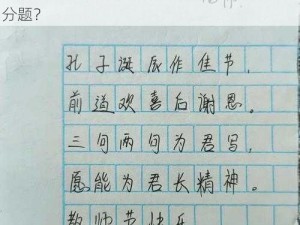 分题？
孔子诞辰作佳节，
前道欢喜后谢恩。
三句两句为君写，
愿能为君长精神。
教师节快乐